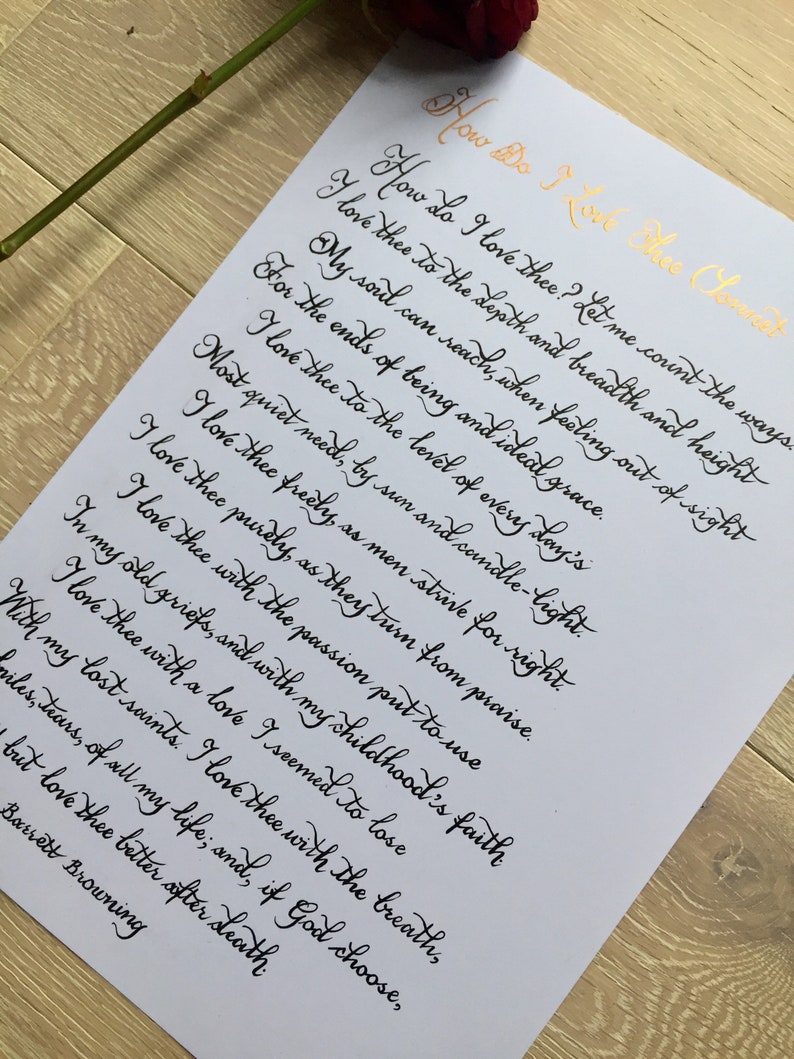 How Do I Love Thee (Sonnet
How do I love thee? Let me count the ways.
I love thee to the depth and breadth and height
My soul can reach, when feeling out of sight
For the ends of being and ideal grace.
I love thee to the level of every day's
Most quiet need, by sun and candle-light.
I love thee freely, as men strive for right.
I love thee purely, as they turn from praise.
I love thee with the passion put to use
In my old griefs, and with my childhood's faith
I love thee with a love I seemed to lose
With my lost saints. I love thee with the breath,
miles, tears, of all my life; and, if God choose,
but love thee better after death.
Barrett Browning